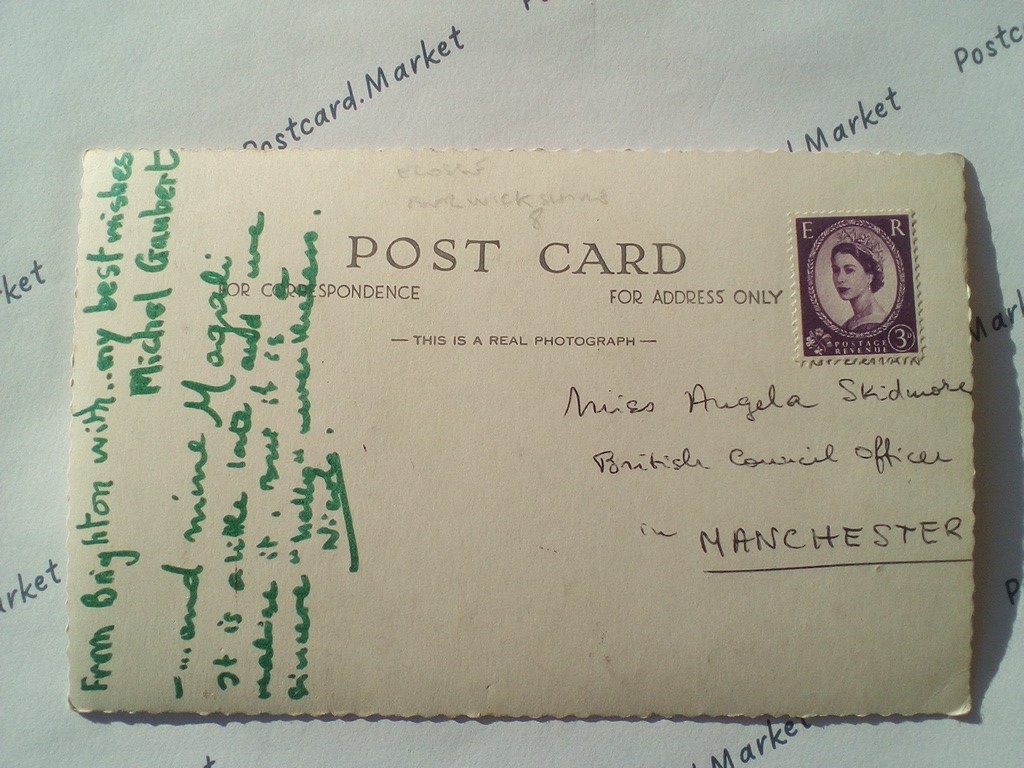 Postcard.Market
Market
Postc
ket
Mark
arket
Market
POST CARD
FOR CORRESPONDENCE
FOR ADDRESS ONLY
— THIS IS A REAL PHOTOGRAPH —
E R
POSTAGE
REVENUE
3D
Miss Angela Skidmore
British Council Officer
in
MANCHESTER
From Brighton with..my best wishes
Michel Gaubert
-...and mine Magali
It is a little late and we
realise it, but it is
sincere nevertheless.